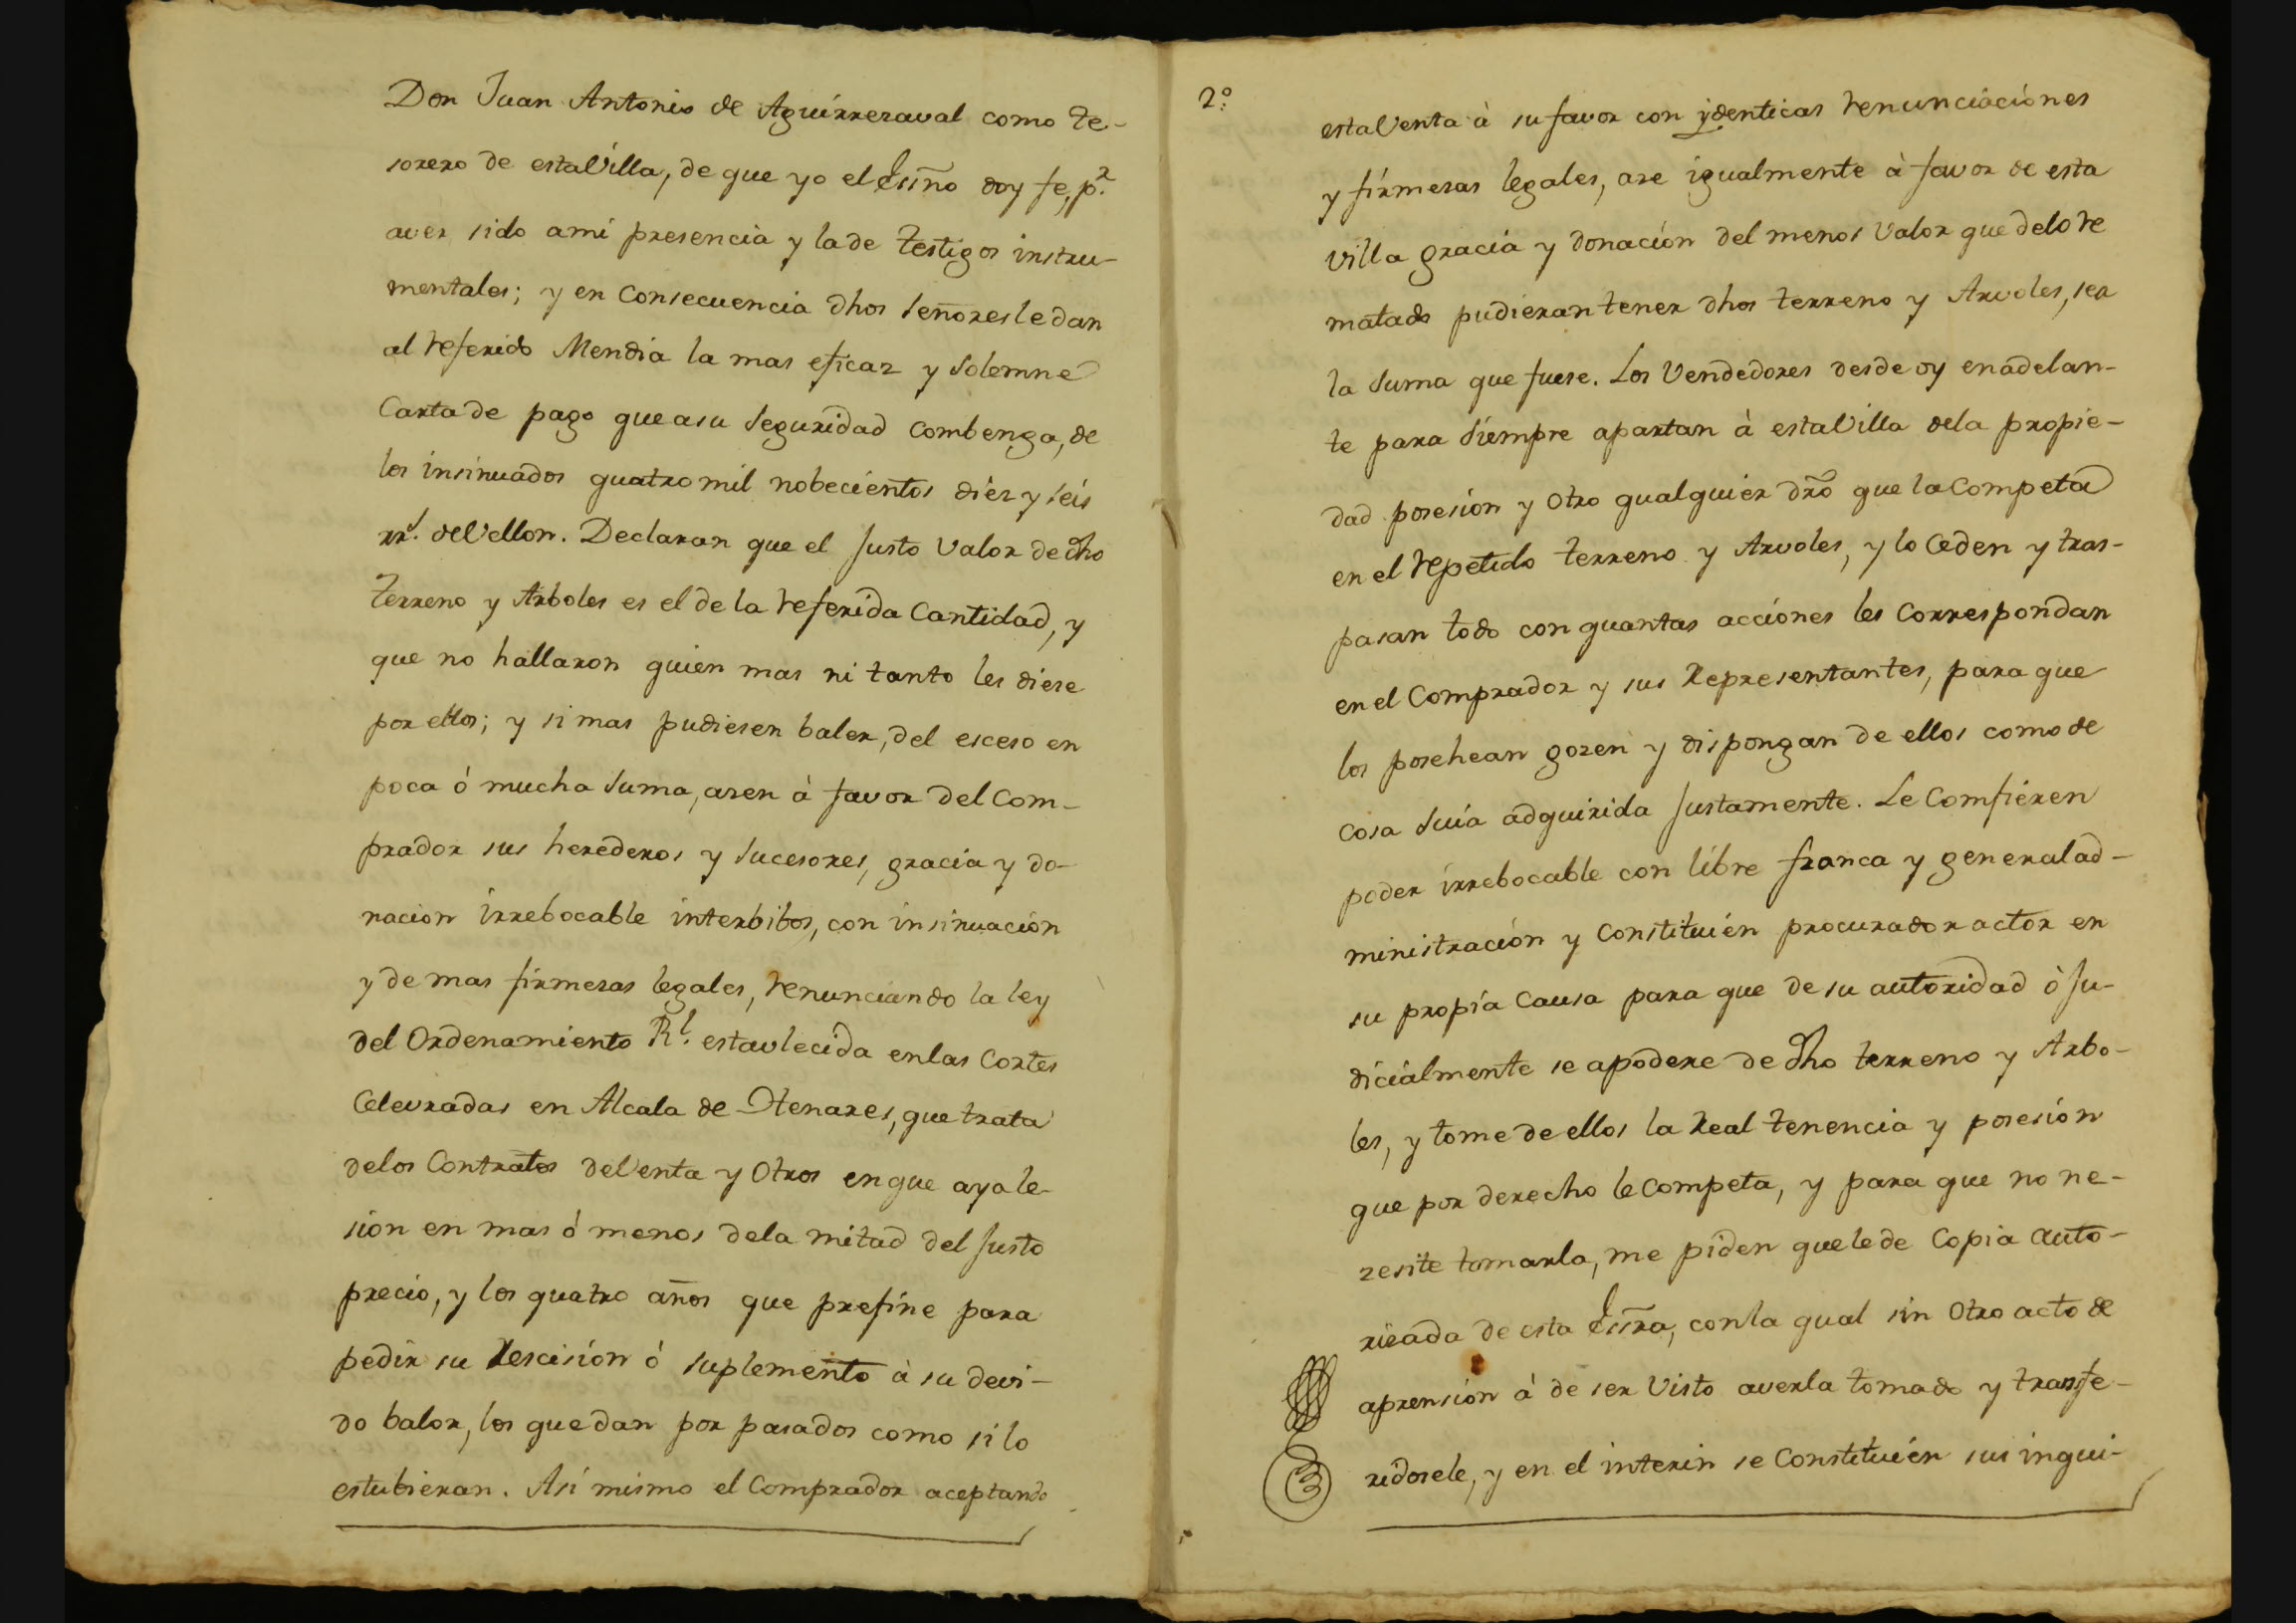 Don Juan Antonio de Aguirreraval como te-
sorero de esta Villa, de que yo el Essno doy fe, p.r
aver sido ami presencia y la de testigos instru-
mentales; y en consecuencia dhos Señores le dan
al referido Mendia la mas eficaz y Solemne
Carta de pago que a su Seguridad combenga, de
los insinuados quatro mil nobecientos diez y seis
rr.s de Vellon. Declaran que el Justo Valor de dho
terreno y Arboles es el de la referida Cantidad, y
que no hallaron quien mas ni tanto les diese
por ellos; y si mas pudiesen baler, del esceso en
poca ó mucha Suma, asen à favor del Com-
prador sus herederos y Sucesores, gracia y do-
nacion irrebocable interbibos, con insinuacion
y demas firmesas legales, renunciando la ley
del Ordenamiento R.l estavlecida en las Cortes
Celevradas en Alcala de Henares, que trata
delos Contratos de Venta y Otros en que aya le-
sion en mas ó menos dela mitad del Justo
precio, y los quatro años que prefine para
pedir su Rescisión ó suplemento à su devi-
do balor, los que dan por pasados como si lo
estubieran. Asi mismo el Comprador aceptando
2.º
esta Venta à su favor con ydenticas renunciaciones
y firmesas legales, ase igualmente à favor de esta
Villa gracia y donación del menos Valor que delo re
matado pudieran tener dhos terreno y Arvoles, sea
la Suma que fuese. Los Vendedores desde oy en adelan-
te para Siempre apartan à esta Villa dela propie-
dad posesion y Otro qualquier dro que la Competa
en el repetido terreno y Arvoles, y lo Ceden y tras-
pasan todo con quantas acciones les Correspondan
en el Comprador y sus Representantes, para que
los posehean gozen y dispongan de ellos como de
Cosa Suia adquirida Justamente. Le Comfieren
poder irrebocable con libre franca y general ad-
ministración y Constituién procurador actor en
su propia Causa para que de su autoridad ò Ju-
dicialmente se apodere de dho terreno y Arbo-
les, y tome de ellos la Real tenencia y posesión
que por derecho le Competa, y para que no ne-
zesite tomarla, me piden que le de Copia auto-
rizada de esta Essra, con la qual sin Otro acto de
aprension à de ser Visto averla tomado y transfe-
ridosele, y en el interin se Constituién sus inqui-